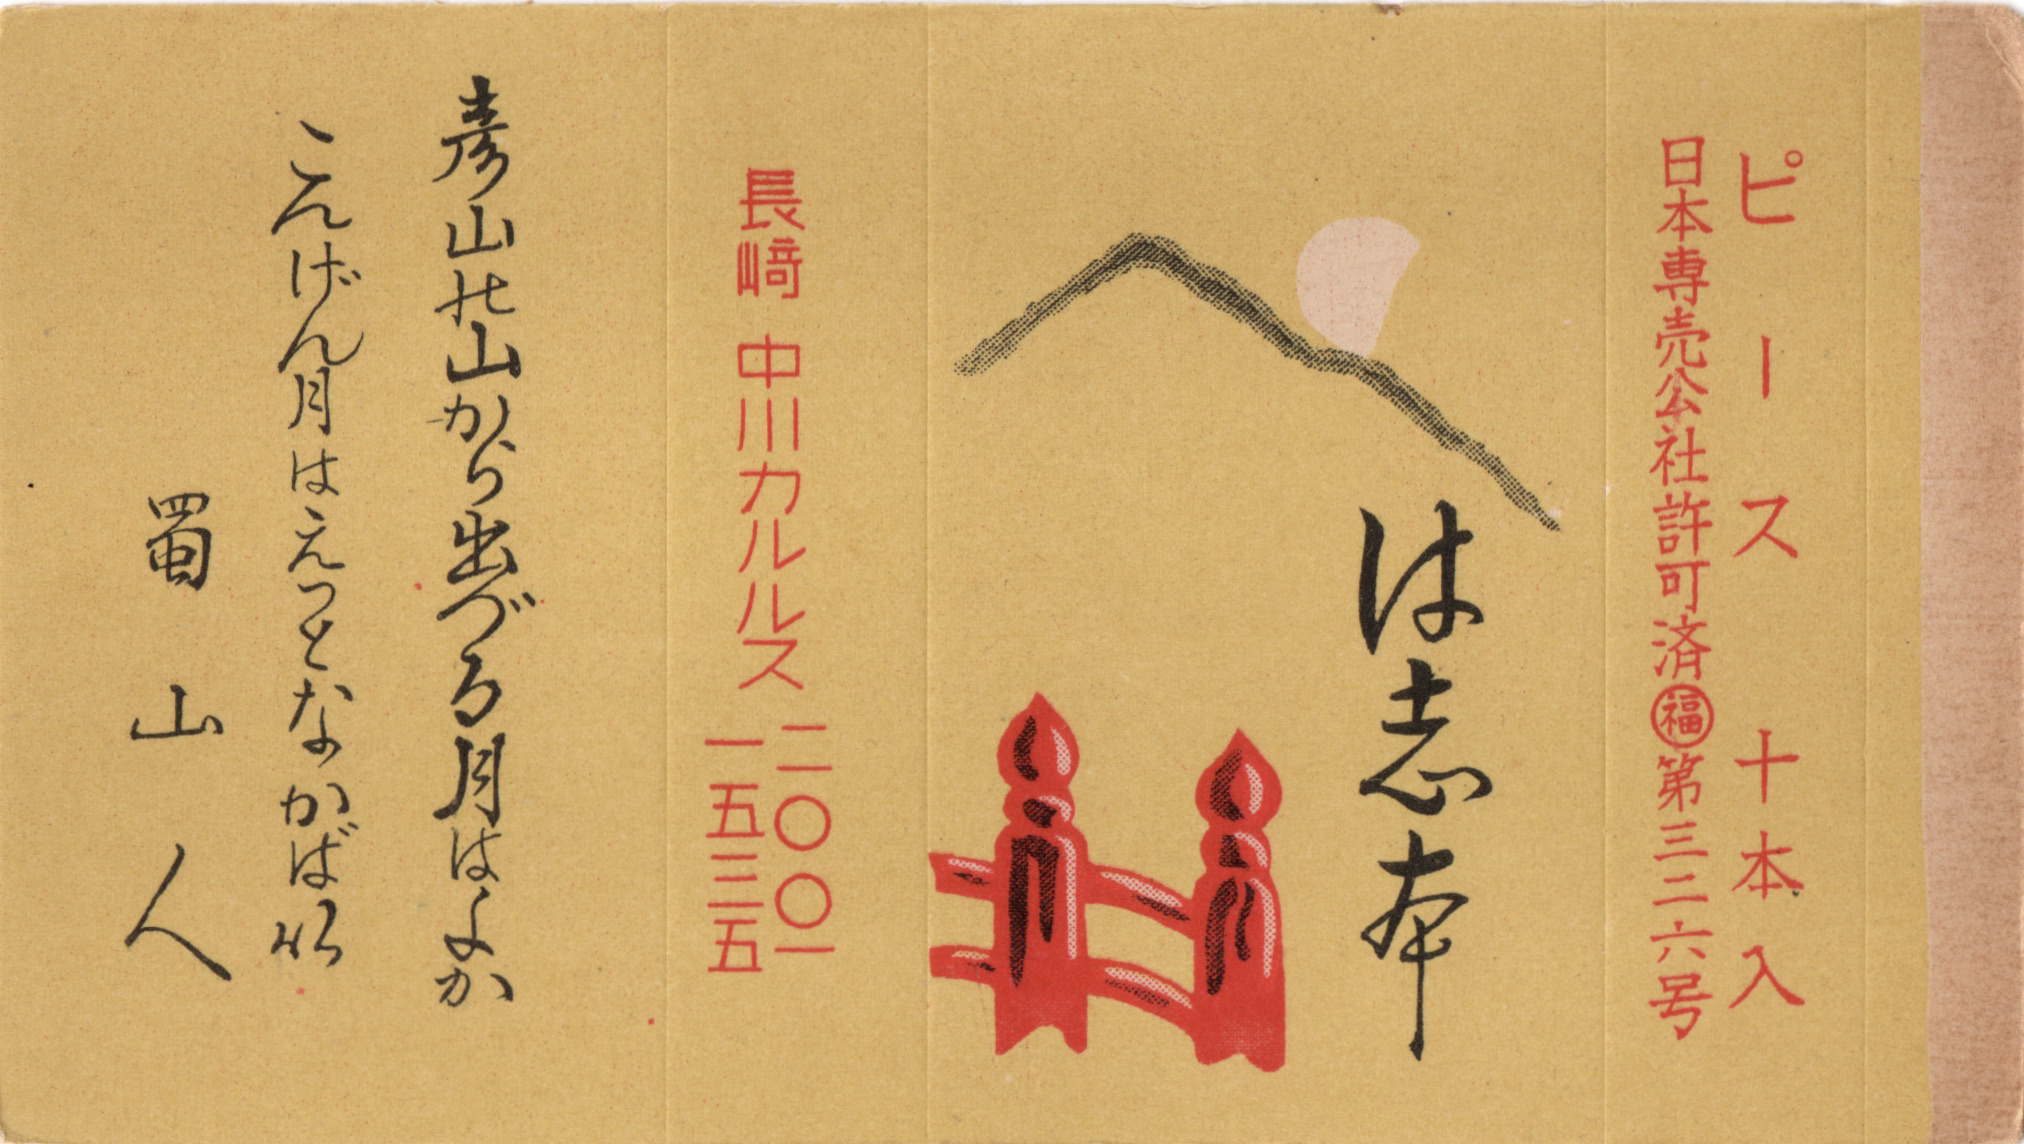 ピース 十本入
日本専売公社許可済㊕福第三二六号
は志本
長﨑 中川カルルス
二〇〇一
一五三五
彦山の山から出づる月はよか
こんげん月はえっとなかばい
蜀山人